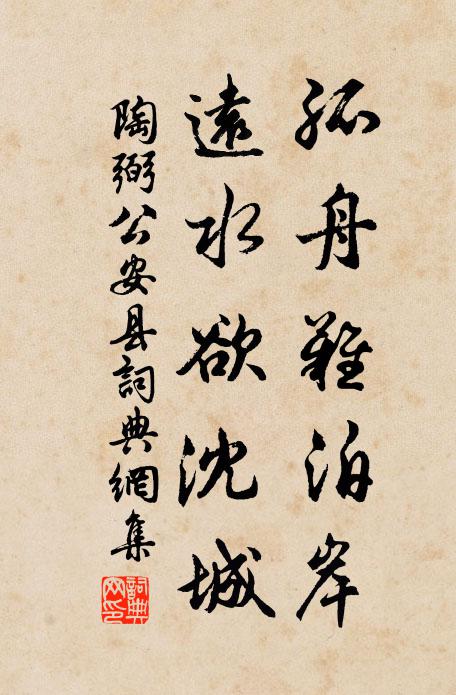 孤舟難泊岸
遠水欲沈城
陶弼公安县詞典網集
詞典網印